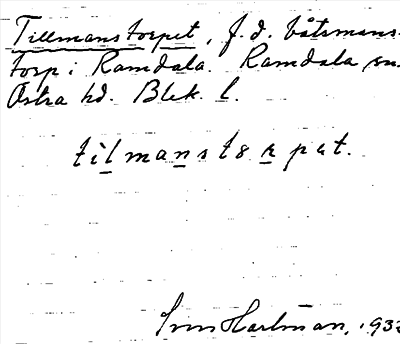 Tillmanstorpet, f.d. båtsmans-
torp i Ramdala. Ramdala sn.
Östra hd. Blek. l.
tilmanstørpet.
Hartman, 193